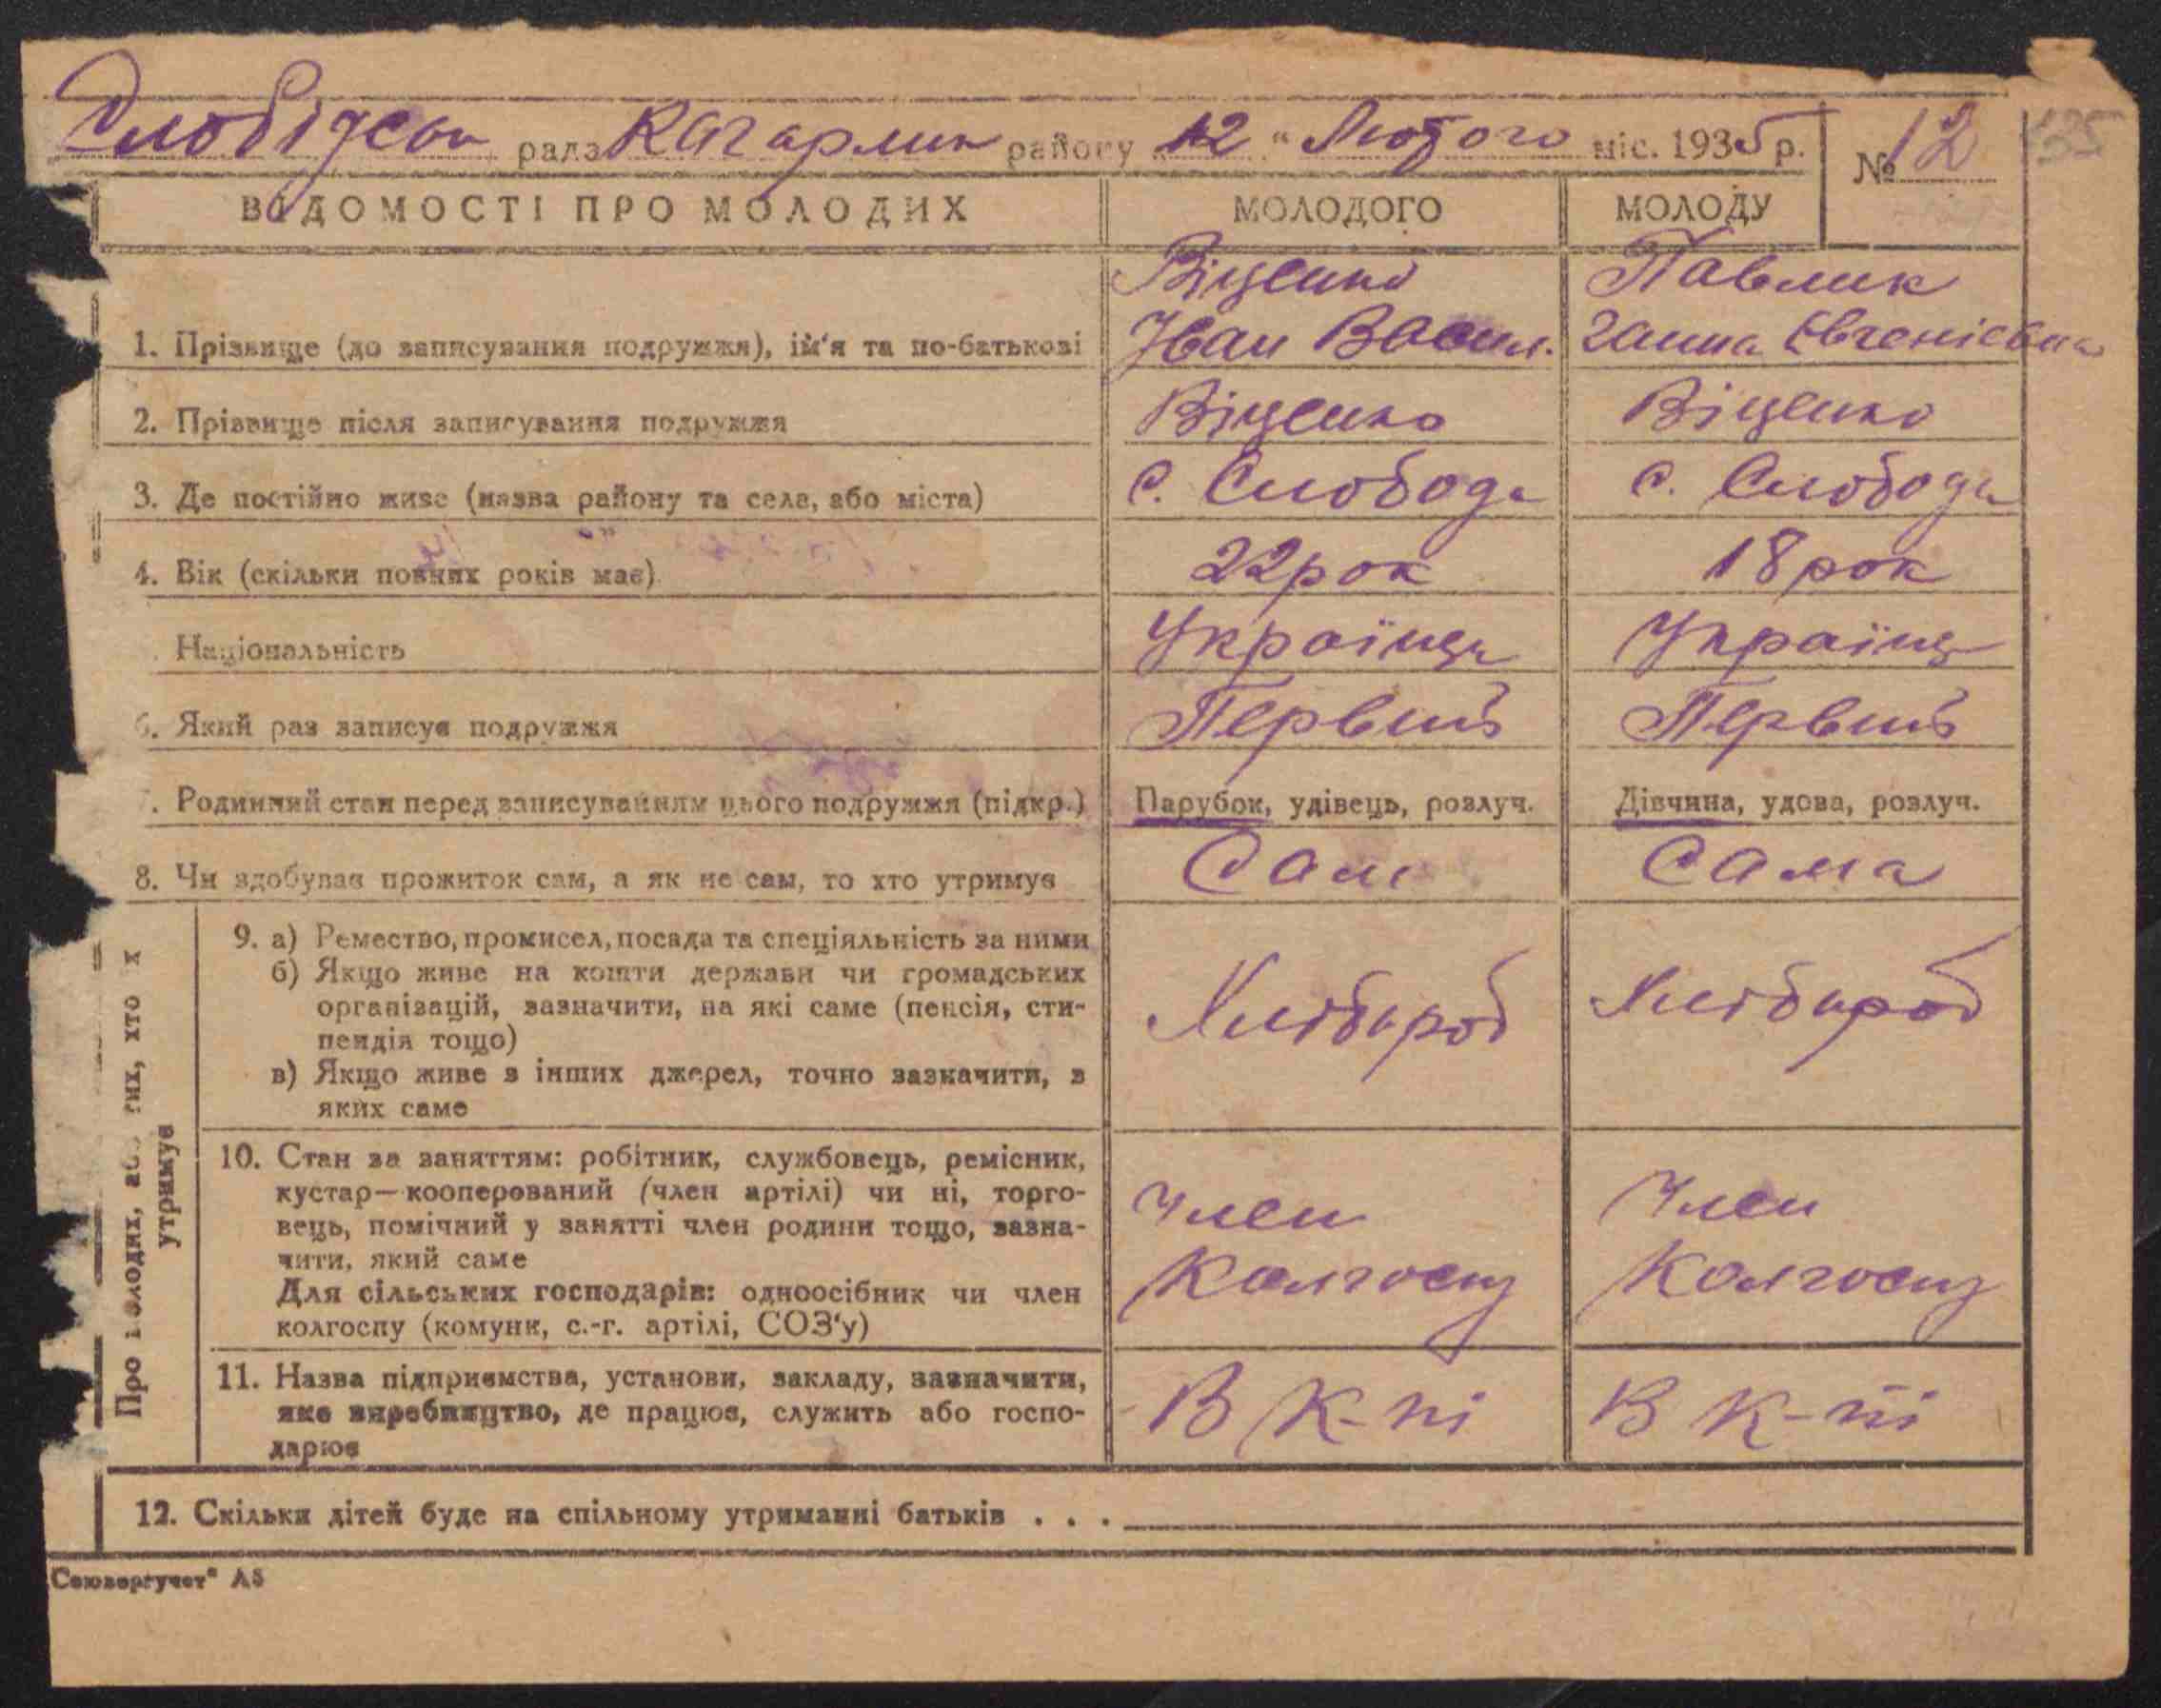 Слобідська рада Кагарлик району "12" Лютого міс. 1935 р. № 12 135
ВІДОМОСТІ ПРО МОЛОДИХ МОЛОДОГО МОЛОДУ
Віценко Павлик
1. Прізвище (до записування подружжя), ім'я та по-батькові Іван Васил. Ганна Євгенієвна
2. Прізвище після записування подружжя Віценко Віценко
3. Де постійно живе (назва району та села, або міста) с. Слобода с. Слобода
4. Вік (скільки повних років має) 22 рок 18 рок
Національність Українць Українц
6. Який раз записує подружжя Первий Первий
7. Родинний стан перед записуванням цього подружжя (підкр.) Парубок, удівець, розлуч. Дівчина, удова, розлуч.
8. Чи здобував прожиток сам, а як не сам, то хто утримує Сам Сама
Про молодих, або тих, хто їх утримує
9. а) Ремество, промисел, посада та спеціяльність за ними
б) Якщо живе на кошти держави чи громадських
організацій, зазначити, на які саме (пенсія, сти-
пендія тощо)
в) Якщо живе з інших джерел, точно зазначити, з
яких саме
Хлібароб Хлібароб
10. Стан за заняттям: робітник, службовець, ремісник,
кустар—кооперований (член артілі) чи ні, торго-
вець, помічний у занятті член родини тощо, зазна-
чити, який саме
Для сільських господарів: одноосібник чи член
колгоспу (комуни, с.-г. артілі, СОЗ'у)
член Член
Колгоспу Колгоспу
11. Назва підприємства, установи, закладу, зазначити,
яке виробництво, де працює, служить або госпо-
дарює
В К-пі В К-пі
12. Скільки дітей буде на спільному утриманні батьків . . .
Союзоргучет" А5